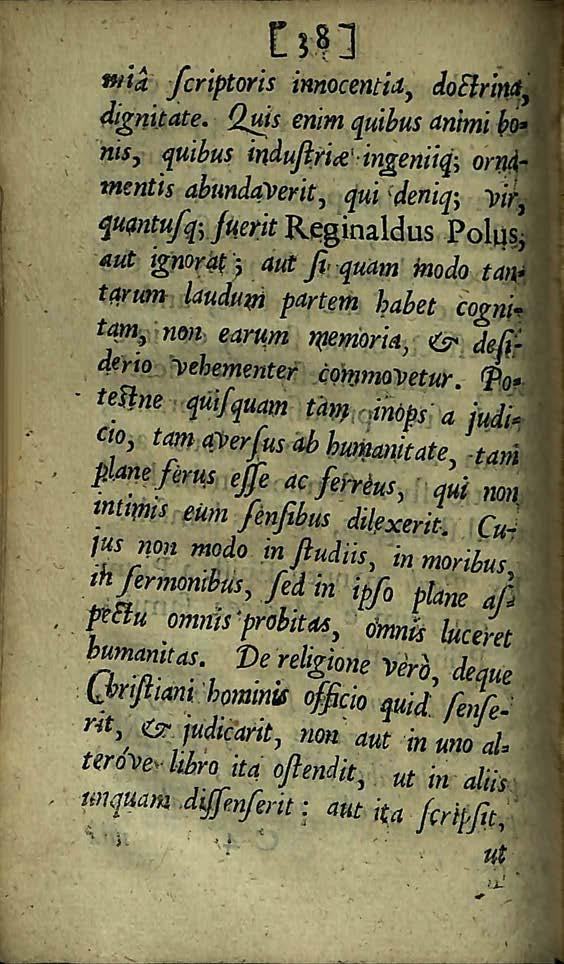 [38]
miâ ſcriptoris innocentia, doctrina,
dignitate. Quis enim quibus animi bo-
nis, quibus induſtriæ ingeniiq; orna-
mentis abundaverit, qui deniq; vir,
quantuſq; fuerit Reginaldus Polus,
aut ignorat; aut ſi quam modo tan-
tarum laudum partem habet cogni-
tam, non earum memoria, & deſi-
derio vehementer commovetur. Po-
teſtne quiſquam tam inops a judi-
cio, tam averſus ab humanitate, tam
plane ferus eſſe ac ferreus, qui non
intimis eum ſenſibus dilexerit. Cu-
jus non modo in ſtudiis, in moribus,
in ſermonibus, ſed in ipſo plane aſ-
pectu omnis probitas, omnis luceret
humanitas. De religione verò, deque
Chriſtiani hominis officio quid ſenſe-
rit, & judicarit, non aut in uno al-
teróve libro ita oſtendit, ut in aliis
unquam diſſenſerit: aut ita ſcripſit,
ut